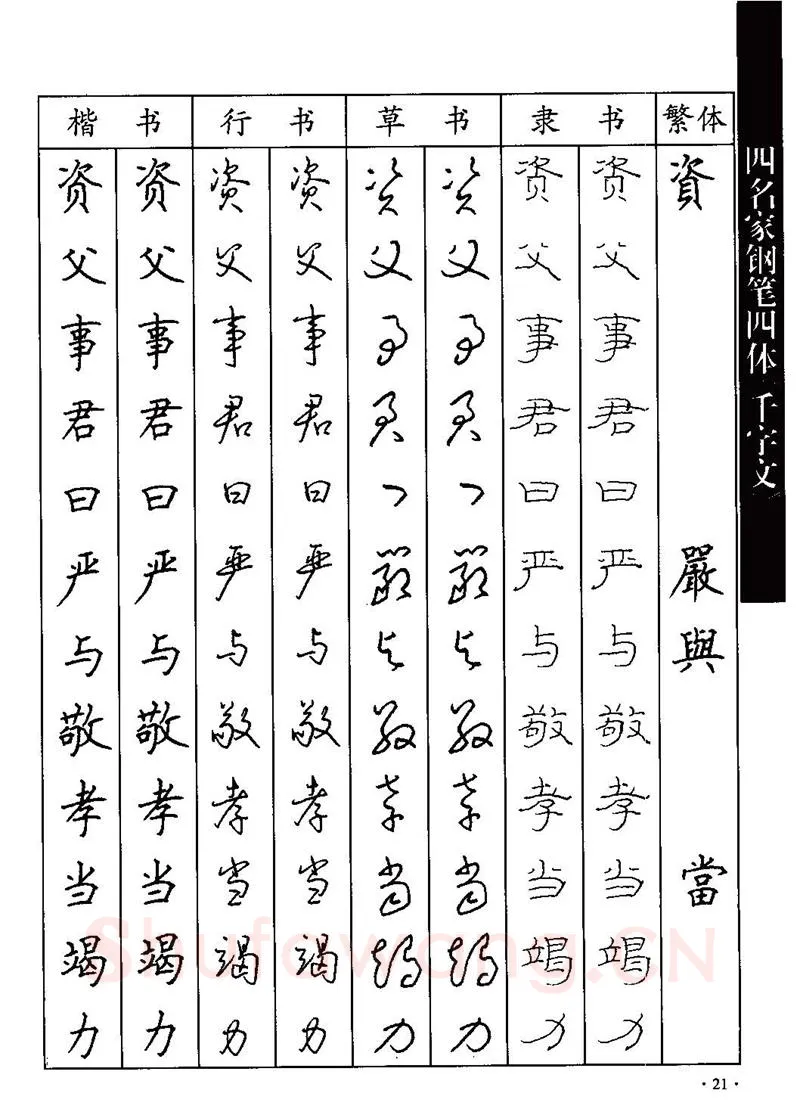 楷书 行书 草书 隶书 繁体
资 资 资 资 资 资 资 资 資
父 父 父 父 父 父 父 父
事 事 事 事 事 事 事 事
君 君 君 君 君 君 君 君
曰 曰 曰 曰 曰 曰 曰 曰
严 严 严 严 严 严 严 严 嚴
与 与 与 与 与 与 与 与 與
敬 敬 敬 敬 敬 敬 敬 敬
孝 孝 孝 孝 孝 孝 孝 孝
当 当 当 当 当 当 当 当 當
竭 竭 竭 竭 竭 竭 竭 竭
力 力 力 力 力 力 力 力
四名家钢笔四体千字文
Shufawang.CN
·21·